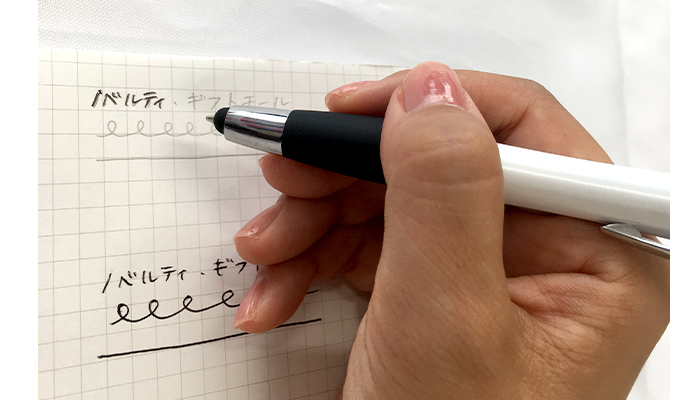 ノベルティ・ギフトモール
ノベルティ・ギフ